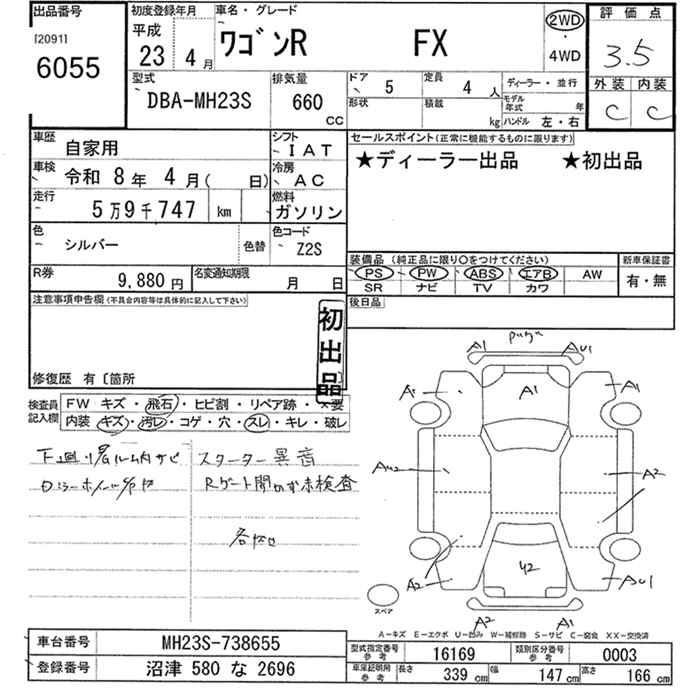 出品番号 初度登録年月 車名・グレード 評価点
[2091] 平成 ワゴンR FX 2WD
6055 23年 4月 4WD 3.5
型式 排気量 ドア 5 定員 4人 ディーラー・並行 外装 内装
DBA-MH23S 660 CC 形状 積載 kg モデル年式 年 ハンドル 左・右 C C
車歴 自家用 シフト IAT セールスポイント(正常に機能するものに限ります)
車検 令和 8年 4月( 日) 冷房 AC ★ディーラー出品 ★初出品
走行 5万9千747 km 燃料 ガソリン
色 シルバー 色替 色コード Z2S
装備品 (純正品に限り○をつけてください) 新車保証書
R券 9,880円 名変通知期限 月 日 PS PW ABS エアB AW 有・無
SR ナビ TV カワ
注意事項申告欄(不具合内容等は具体的に記入して下さい) 後日品
初出品
修復歴 有〔箇所 〕
検査員記入欄 FW キズ・飛石・ヒビ割・リペア跡・×要
内装 キズ・汚レ・コゲ・穴・スレ・キレ・破レ
スターター異音
Rゲート開かず未検査
A1 AU1
A1 A1 A1
AU2 A2
A2 U2 AU1
スペア
A2 A1
A-キズ E-エクボ U-凹み W-補修跡 S-サビ C-腐食 XX-交換済
車台番号 MH23S-738655 型式指定番号 参考 16169 類別区分番号 参考 0003
登録番号 沼津 580 な 2696 車庫証明用 参考 長さ 339 cm 幅 147 cm 高さ 166 cm